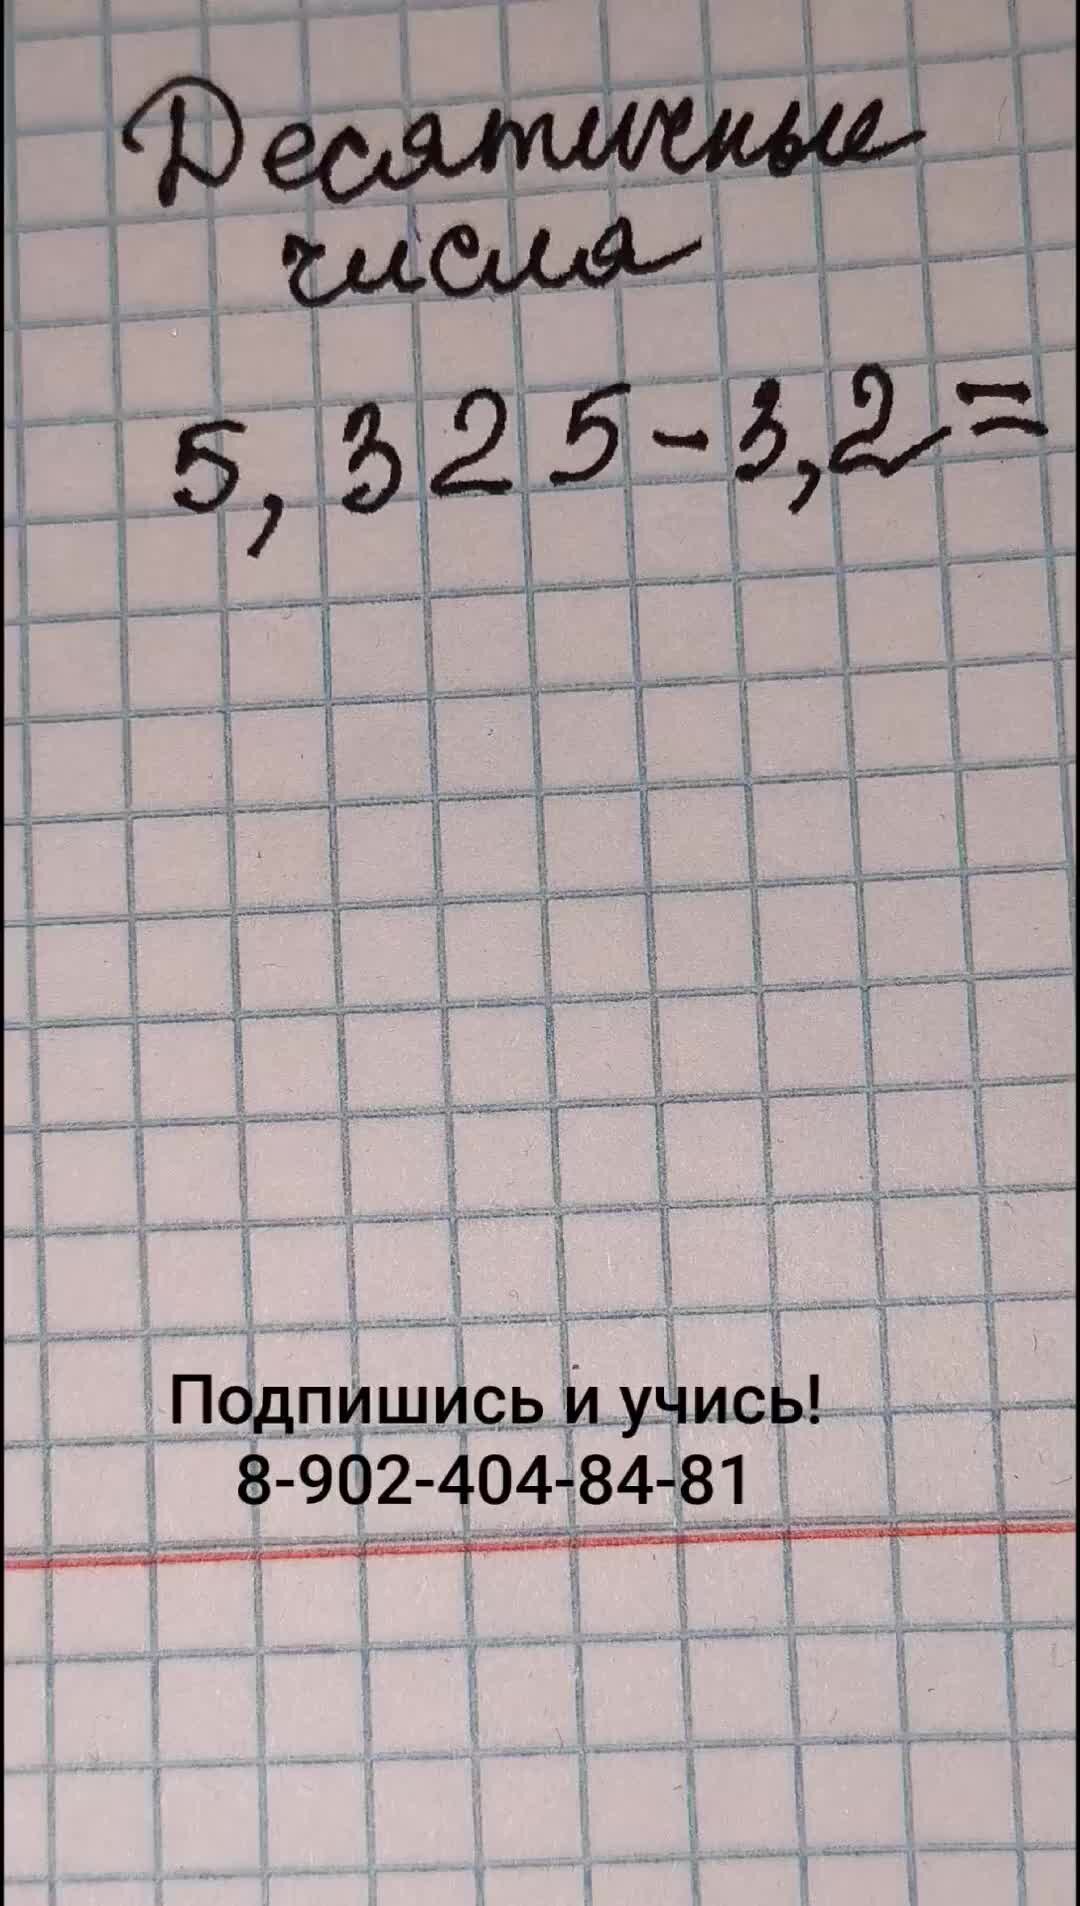 Десятичные
числа
5,325-3,2=
Подпишись и учись!
8-902-404-84-81